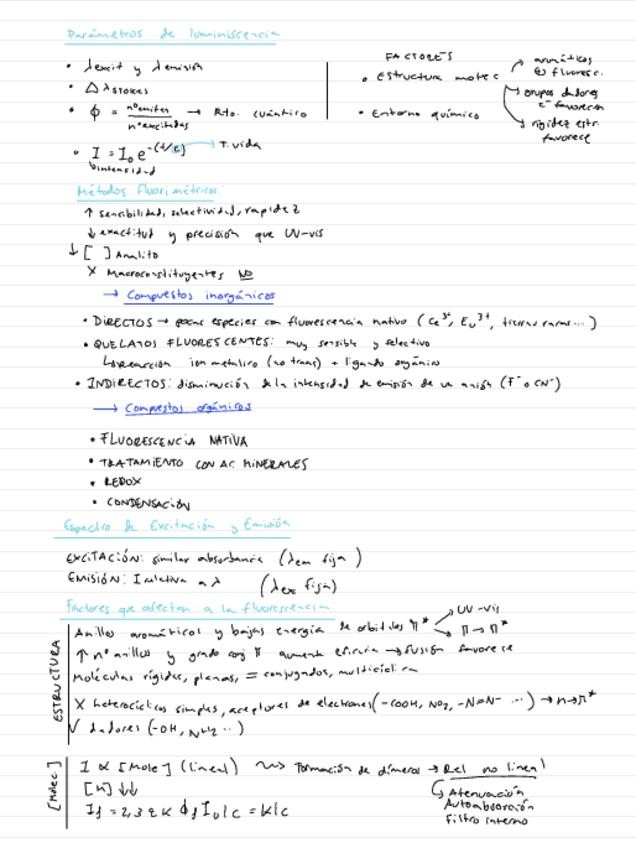 Parámetros de luminiscencia
• λexcit y λemisión
• Δλ STOKES
• ϕ = nº emiten / nº excitadas → Rto. cuántico
• I = I₀ e^-(t/τ) → T. vida
↳ intensidad
FACTORES
• Estructura molec
aromáticos ⊕ fluoresc.
grupos dadores e⁻ favorecen
rigidez estr. favorece
• Entorno químico
Métodos fluorimétricos:
↑ sensibilidad, selectividad, rapidez
↓ exactitud y precisión que UV-vis
↓ [ ] Analito
X Macroconstituyentes NO
→ Compuestos inorgánicos
• DIRECTOS → pocas especies con fluorescencia nativa (Ce³⁺, Eu³⁺, tierras raras...)
• QUELATOS FLUORESCENTES: muy sensible y selectivo
↳ reacción ion metálico (no trans) + ligando orgánico
• INDIRECTOS: disminución de la intensidad de emisión de un anión (F⁻ o CN⁻)
→ Compuestos orgánicos
• FLUORESCENCIA NATIVA
• TRATAMIENTO CON AC. MINERALES
• REDOX
• CONDENSACIÓN
Espectro de Excitación y Emisión
EXCITACIÓN: similar absorbancia (λem fija)
EMISIÓN: I relativa a λ (λex fija)
Factores que afectan a la fluorescencia
ESTRUCTURA
Anillos aromáticos y bajas energía de orbitales π*
UV-vis
π→π*
↑ nº anillos y grado conj π aumenta eficiencia → fusión favorece
Moléculas rígidas, planas, = conjugados, multicíclica
X heterocíclicos simples, aceptores de electrones (-COOH, NO₂, -N=N- ...) → n→π*
√ dadores (-OH, NH₂ ..)
[Molec.]
I ∝ [Molec] (lineal) ⇝ Formación de dímeros → Rel no lineal
↳ Atenuación
Autoabsorción
Filtro interno
If = 2,3 ε K ϕf I₀ l c = k l c